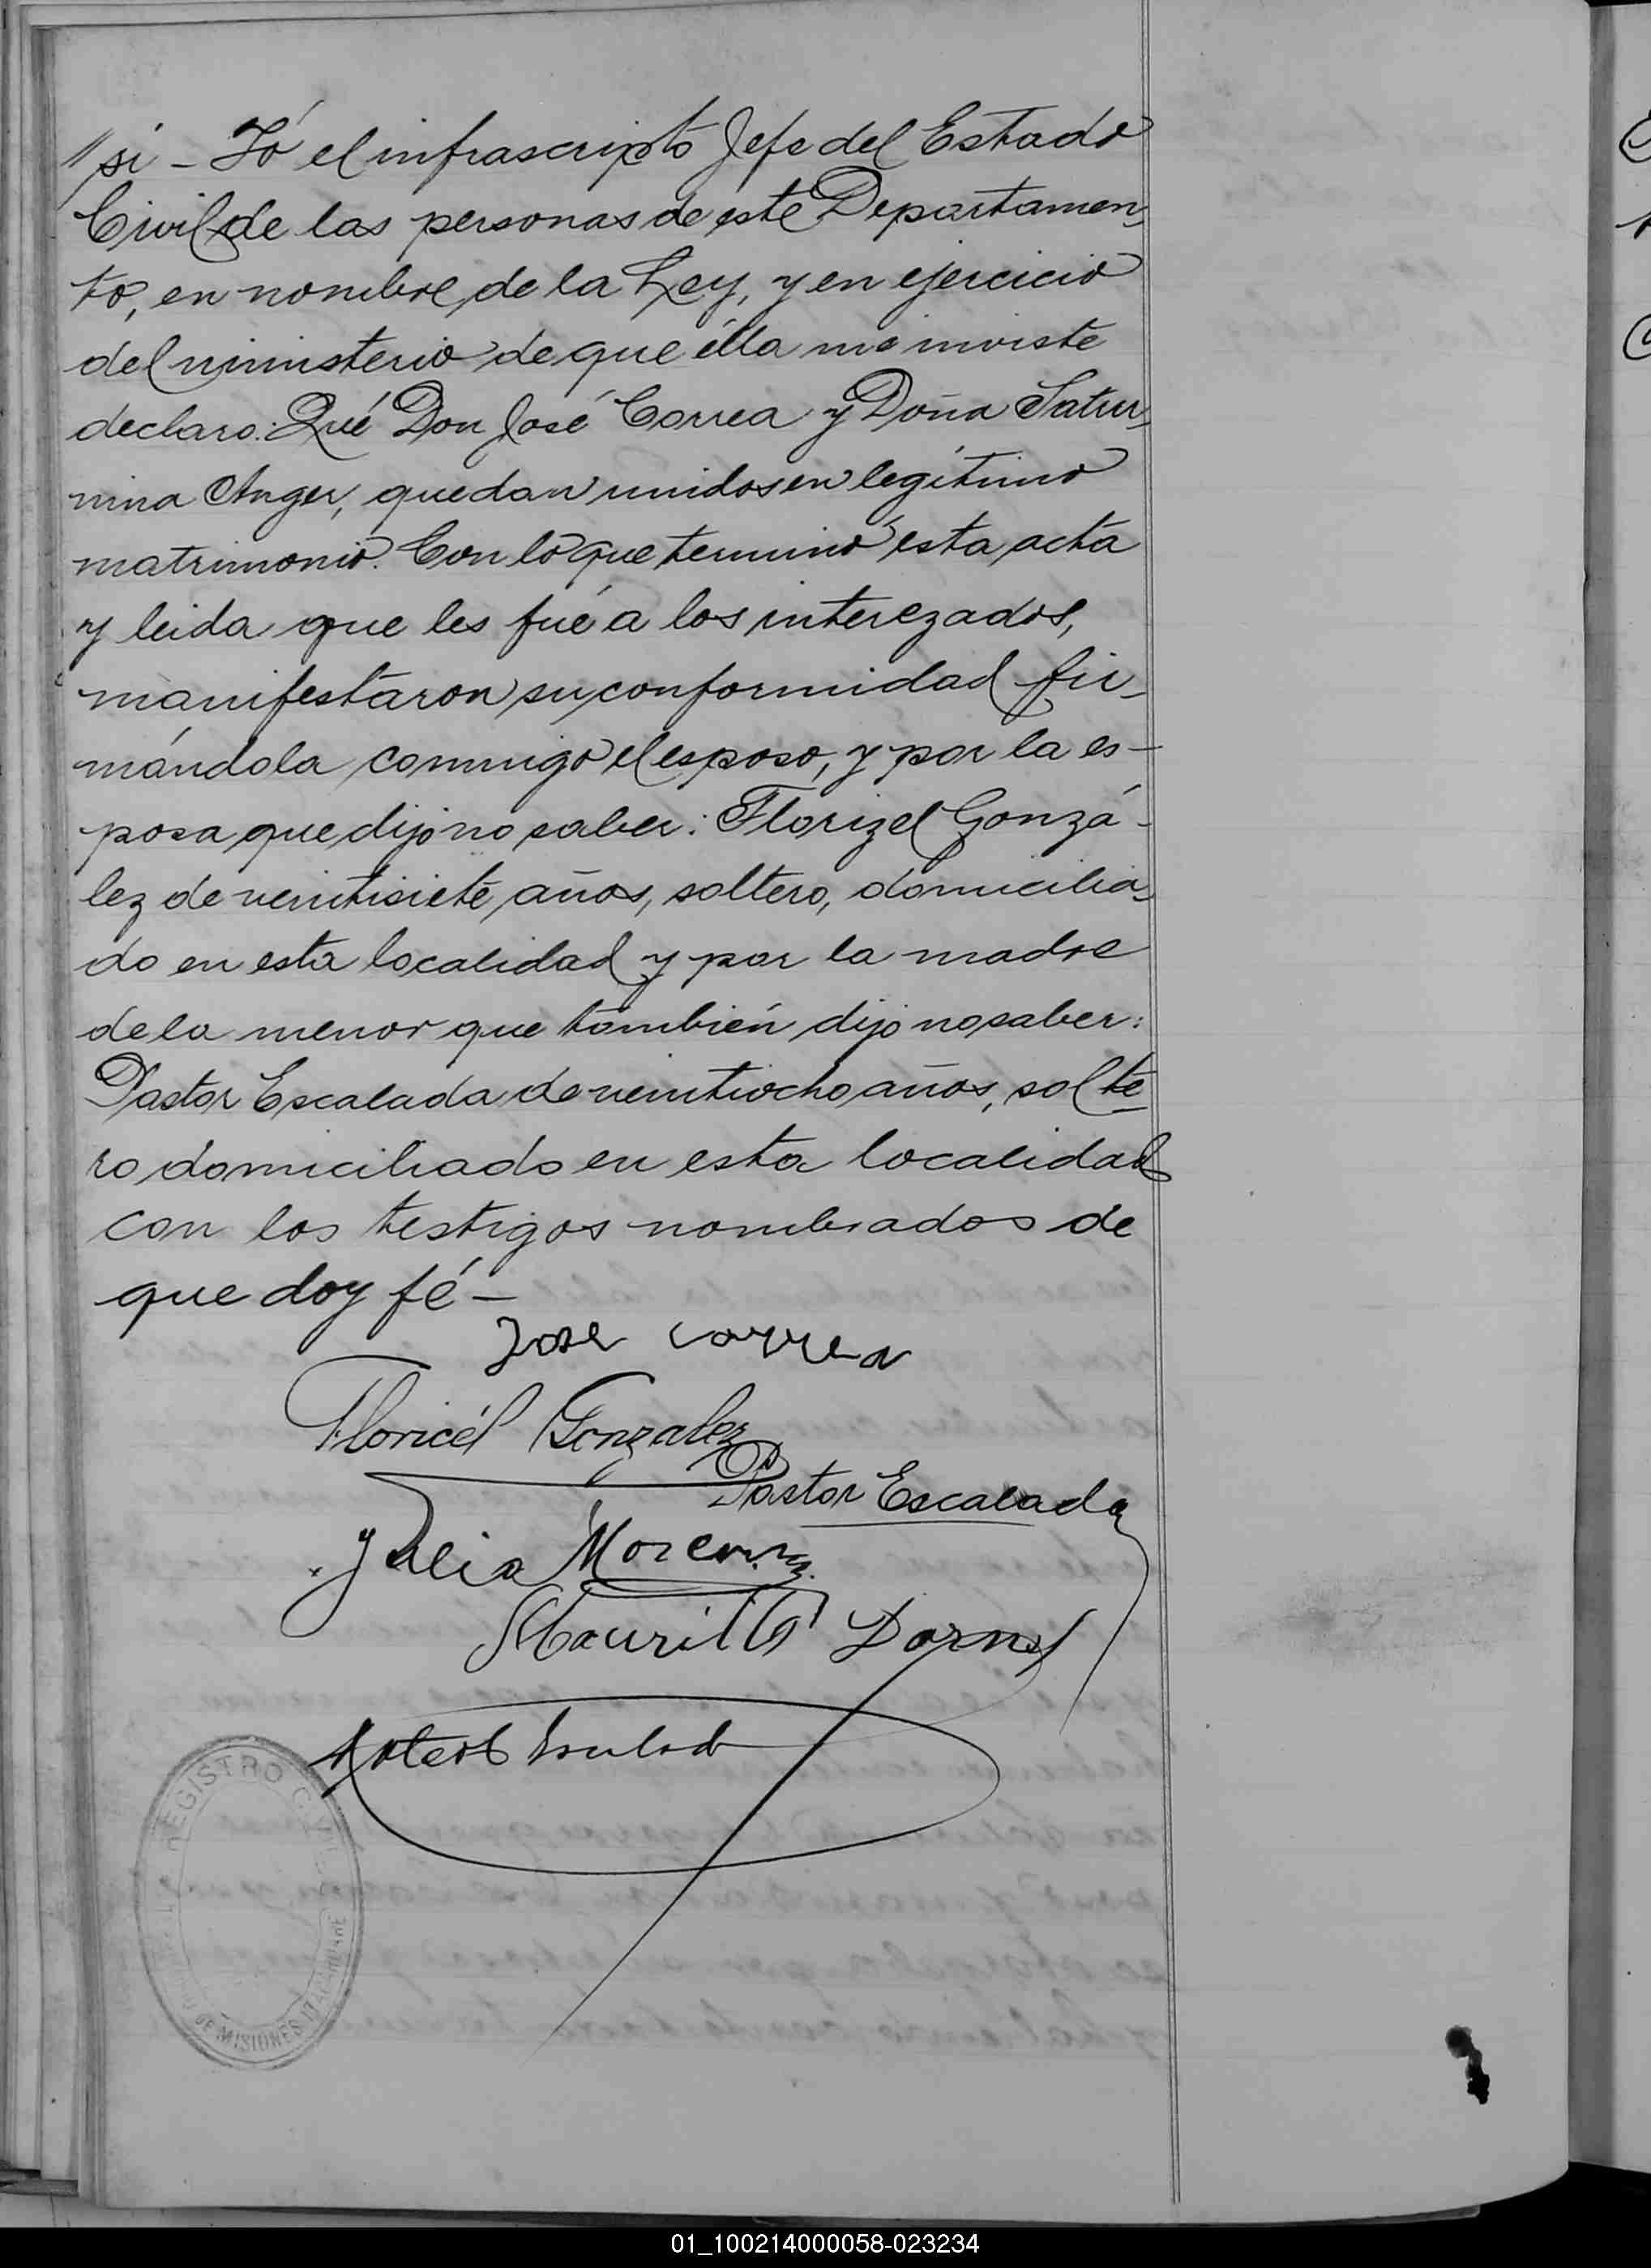 // si – Yó el infrascripto Jefe del Estado
Civil de las personas de este Departamen-
to, en nombre de la Ley, y en ejercicio
del ministerio de que élla me inviste
declaro: Qué Don José Correa y Doña Satur-
nina Anger, quedan unidos en legítimo
matrimonio. Con lo que terminó esta acta
y leida que les fué a los interezados,
manifestaron su conformidad fir-
mándola conmigo el esposo, y por la es-
posa que dijo no saber: Florizel Gonzá-
lez de veintisiete años, soltero, domicilia-
do en esta localidad y por la madre
de la menor que también dijo no saber:
Pastor Escalada de veintiocho años, solte-
ro domiciliado en esta localidad
con los testigos nombrados de
que doy fé –
Jose Correa
Floricél Gonzalez
Pastor Escalada
Julia Moreno
Maurilio
REGISTRO CIVIL
DE MISIONES
01_100214000058-023234